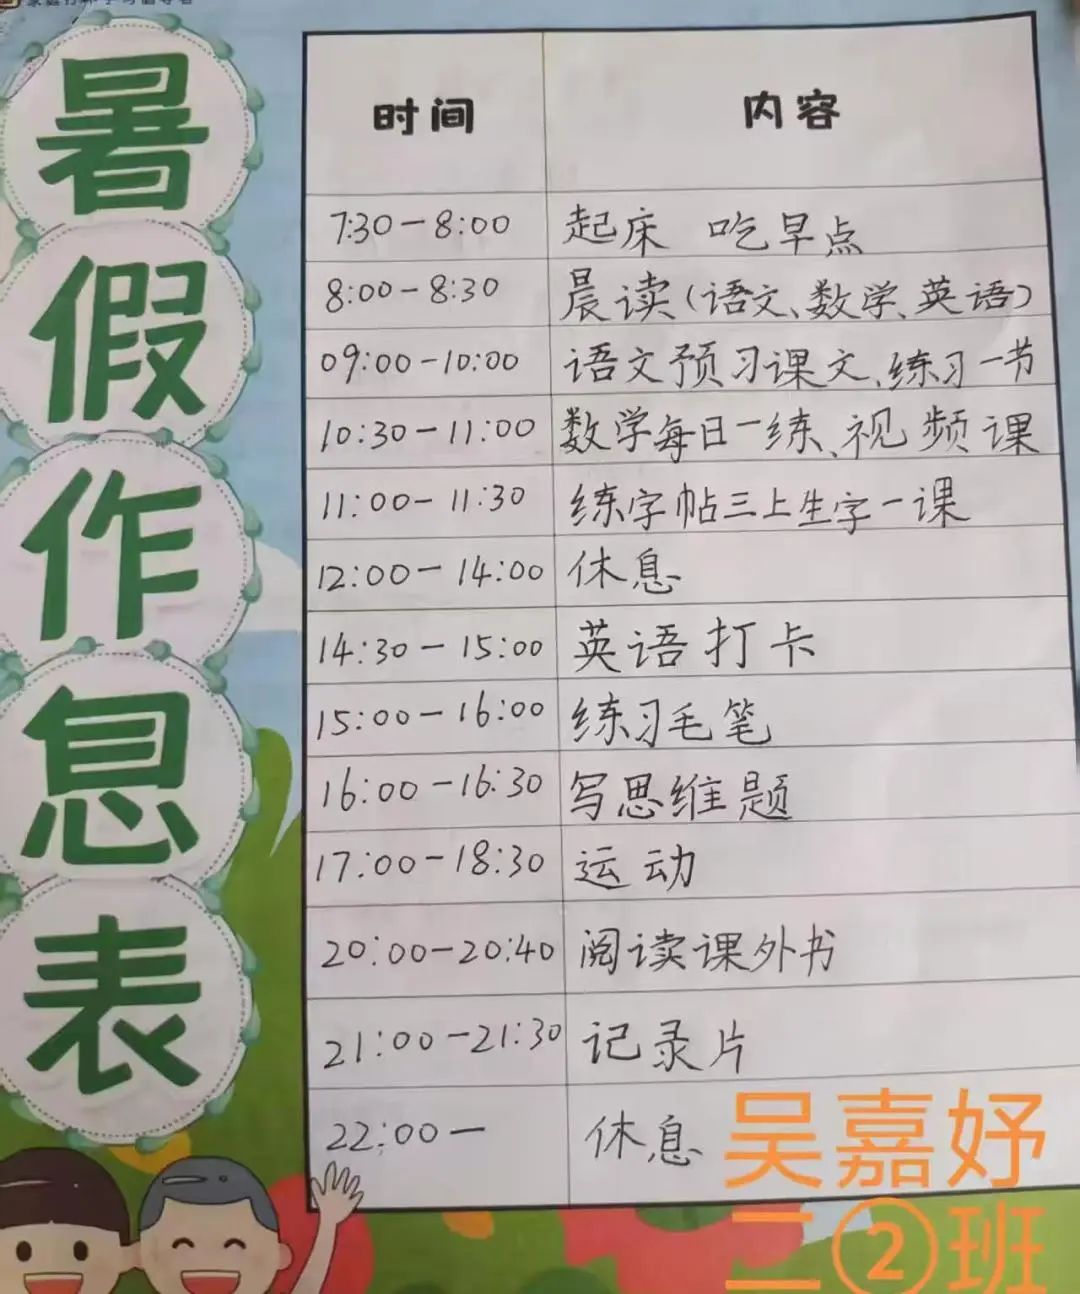 暑假作息表
时间 内容
7:30-8:00 起床 吃早点
8:00-8:30 晨读(语文、数学、英语)
09:00-10:00 语文预习课文、练习一节
10:30-11:00 数学每日一练、视频课
11:00-11:30 练字帖三上生字一课
12:00-14:00 休息
14:30-15:00 英语打卡
15:00-16:00 练习毛笔
16:00-16:30 写思维题
17:00-18:30 运动
20:00-20:40 阅读课外书
21:00-21:30 记录片
22:00- 休息
吴嘉妤
二②班